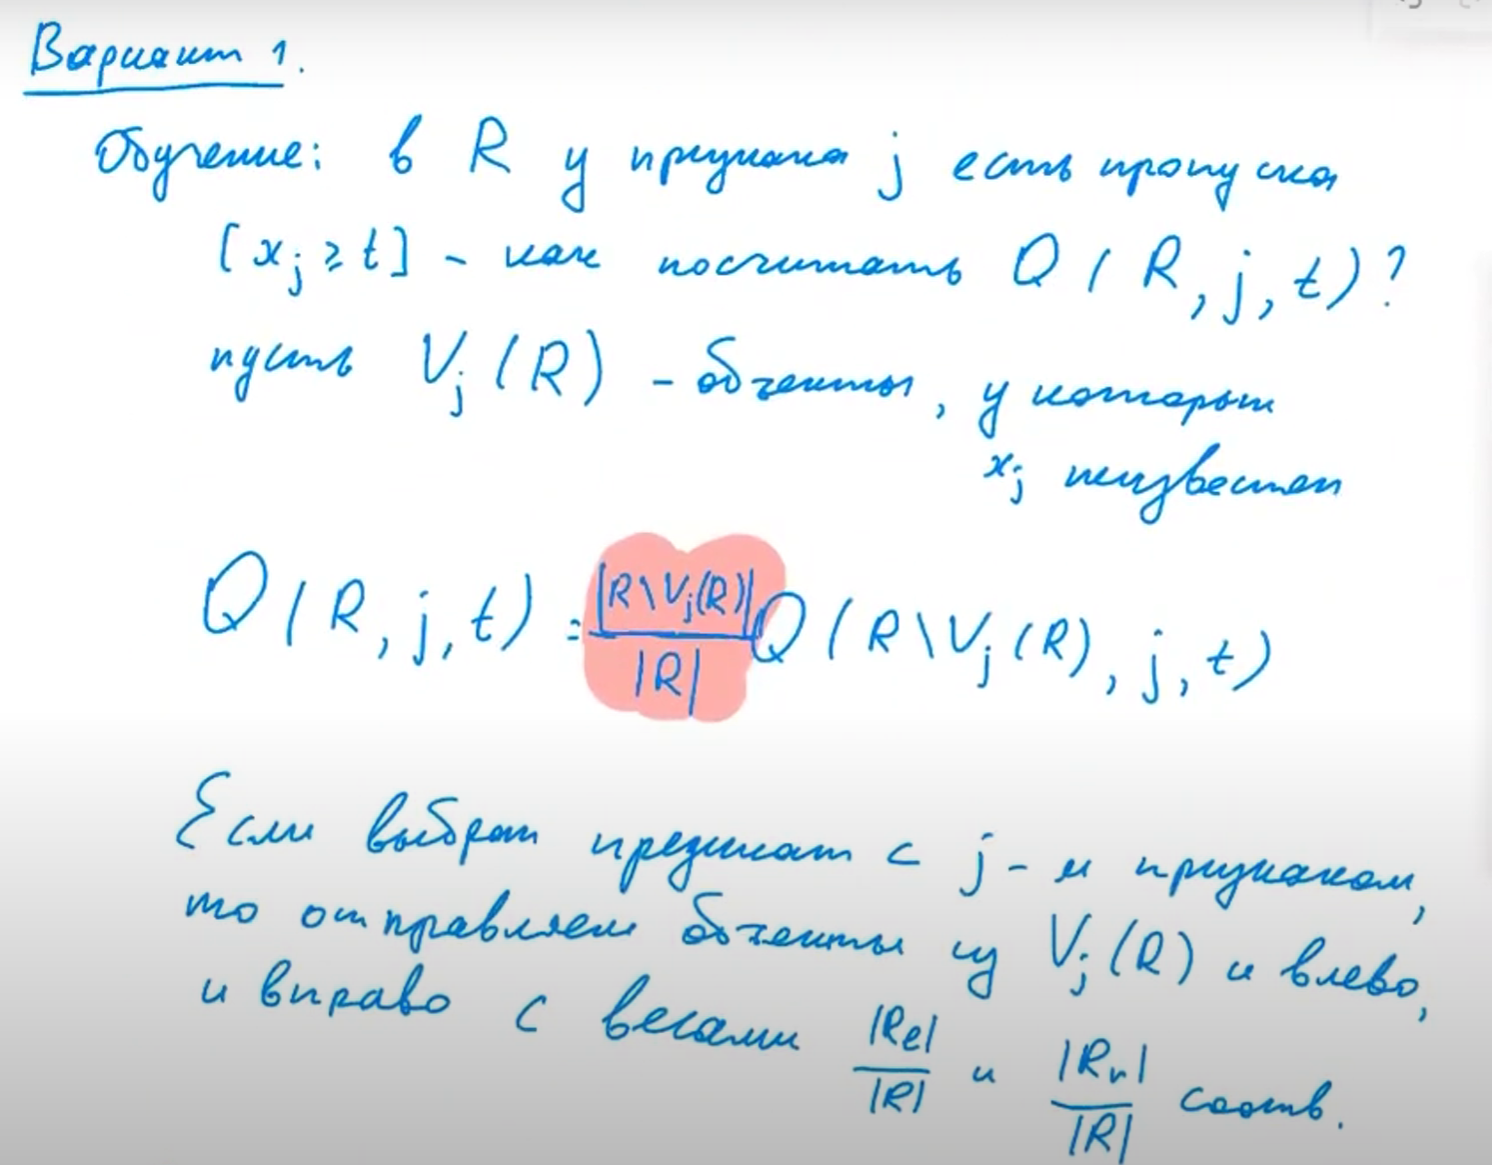 Вариант 1.
Обучение: в R у признака j есть пропуски
[x_j ≥ t] - как посчитать Q(R, j, t)?
пусть V_j(R) - объекты, у которых
x_j неизвестен
Q(R, j, t) = |R\V_j(R)| / |R| Q(R\V_j(R), j, t)
Если выбран предикат с j-м признаком,
то отправляем объекты из V_j(R) и влево,
и вправо с весами |R_l| / |R| и |R_r| / |R| соотв.